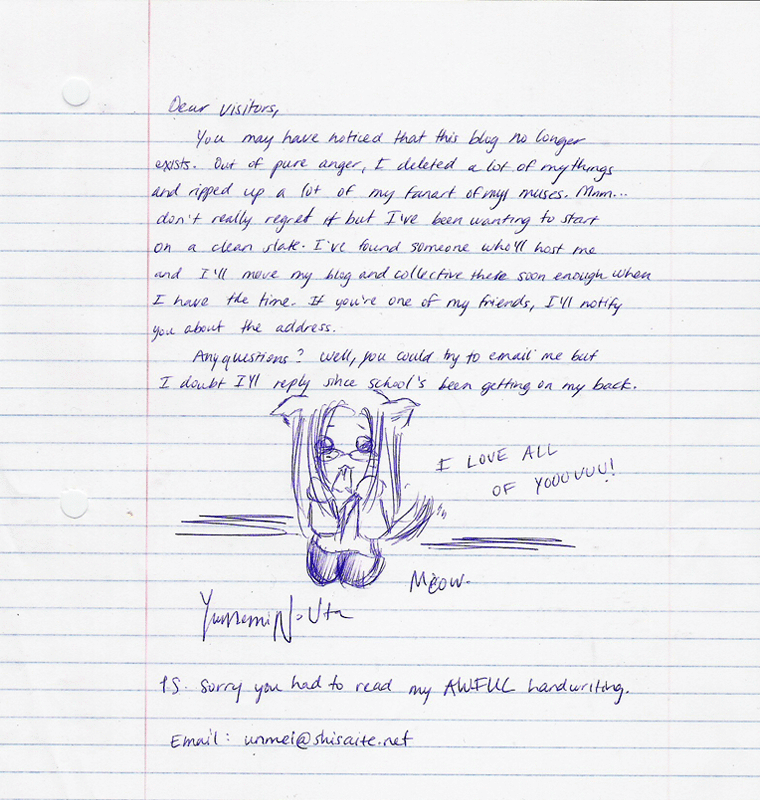 Dear visitors,
You may have noticed that this blog no longer
exists. Out of pure anger, I deleted a lot of my things
and ripped up a lot of my fanart of my muses. Mmm...
don't really regret it but I've been wanting to start
on a clean slate. I've found someone who'll host me
and I'll move my blog and collective there soon enough when
I have the time. If you're one of my friends, I'll notify
you about the address.
Any questions? Well, you could try to email me but
I doubt I'll reply since school's been getting on my back.
I LOVE ALL
OF YOOOUUU!
Meow.
P.S. Sorry you had to read my AWFUL handwriting.
Email: unmei@shisaite.net